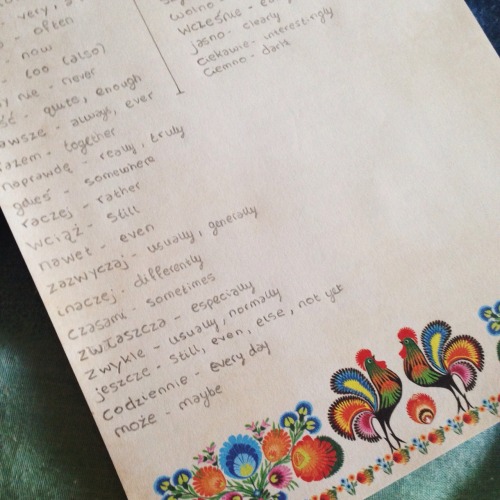 very, a
- often
- now
- too (also)
nie - never
ść - quite, enough
awsze - always, ever
razem - together
naprawdę - really, truly
gdzieś - somewhere
raczej - rather
wciąż - still
nawet - even
zazwyczaj - usually, generally
inaczej - differently
czasami - sometimes
zwłaszcza - especially
zwykle - usually, normally
jeszcze - still, even, else, not yet
codziennie - every day
może - maybe
wolno
wcześnie - ea
jasno - clearly
ciekawie - interestingly
ciemno - dark